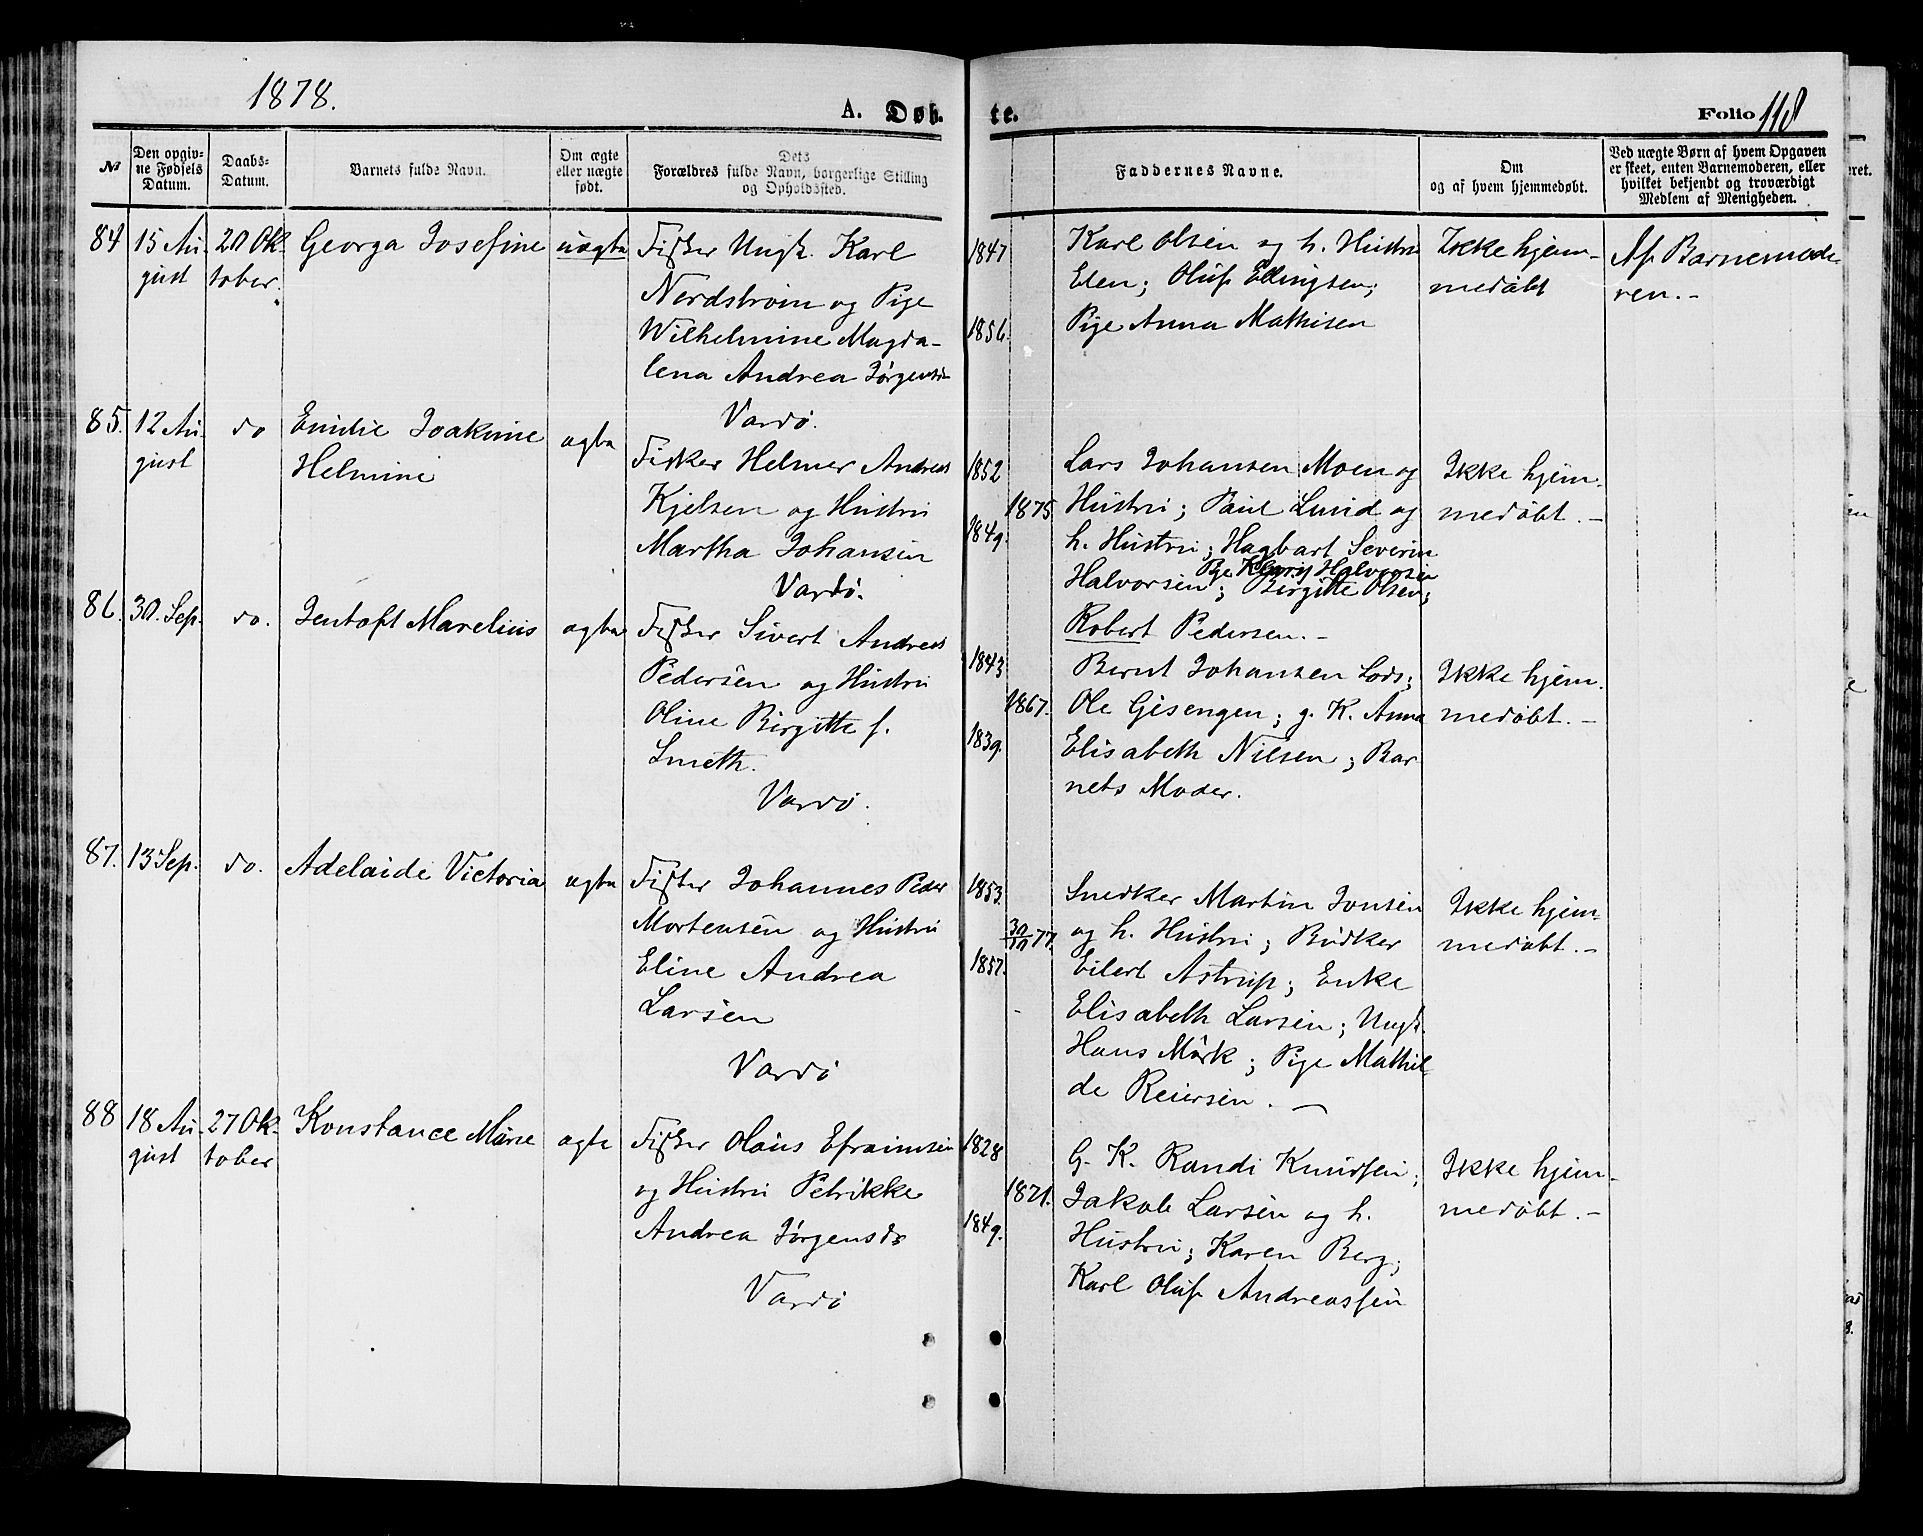 1878.
A. Døb-
te.
Folio 118
No
Den opgiv-
ne Fødsels
Datum.
Daabs-
Datum.
Barnets fulde Navn.
Om ægte
eller uægte
født.
Dets
Forældres fulde Navn, borgerlige Stilling
og Opholdssted.
Faddernes Navne.
Om
og af hvem hjemmedøbt.
Ved uægte Børn af hvem Opgaven
er skeet, enten Barnemoderen, eller
hvilket bekjendt og troværdigt
Medlem af Menigheden.
84
15 Au-
gust
20 Ok-
tober.
Georga Josefine
uægte
Fisker Ungk. Karl
Nordstrøm og Pige
Wilhelmine Magda-
lena Andrea Jørgensdr
Vardø.
1847
1856.
Karl Olsen og h. Hustru
Elen; Oluf Ellingsen;
Pige Anna Mathisen
Ikke hjem-
medøbt
Af Barnemode-
ren.-
85.
12 Au-
gust
do
Emilie Joakime
Helmine
ægte
Fisker Helmer Andreas
Kjelsen og Hustru
Martha Johansen
Vardø.
1852
1849.
1875
Lars Johansen Moen og
Hustru; Paul Lund og
h. Hustru; Hagbart Severin
Halvorsen; Birgitte Olsen;
Robert Pedersen.-
Ikke hjem-
medøbt.-
86.
30. Sep.
do.
Jentoft Marelius
ægte
Fisker Sivert Andreas
Pedersen og Hustru
Oline Birgitte f.
Smeth.
Vardø.
1843
1839.
1867.
Bernt Johansen Lods;
Ole Gisengen; g. K. Anna
Elisabeth Nilsen; Bar
nets Moder.
Ikke hjem-
medøbt.-
87.
13 Sep.
do.
Adelaide Victoria
ægte
Fisker Johannes Peder
Mortensen og Hustru
Eline Andrea
Larsen
Vardø
1853.
1857.
30/10 77.
Snedker Martin Jonsen
og h. Hustru; Bødker
Eilert Astrup; Enke
Elisabeth Larsen; Ungk.
Hans Mørk; Pige Mathil-
de Reiersen.-
Ikke hjem-
medøbt.-
88
18 Au-
gust
27 Ok-
tober
Konstance Marie
ægte
Fisker Olaus Efraimsen
og Hustru Petrikke
Andrea Jørgensdr
Vardø
1828
1849.
1871.
G. K. Randi Knudsen;
Jakob Larsen og h.
Hustru; Karen Berg;
Karl Oluf Andreassen
Ikke hjem-
medøbt.-